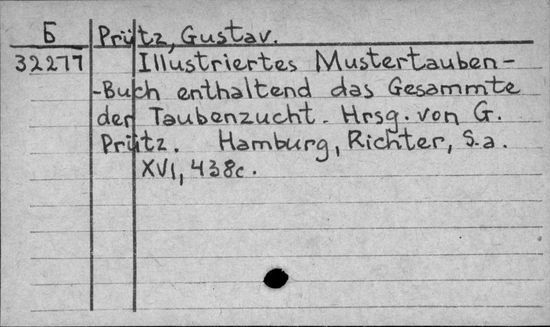 Б Prütz, Gustav.
32277 Illustriertes Mustertauben-
-Buch enthaltend das Gesammte
der Taubenzucht. Hrsg. von G.
Prütz. Hamburg, Richter, S.a.
XVI, 438c.